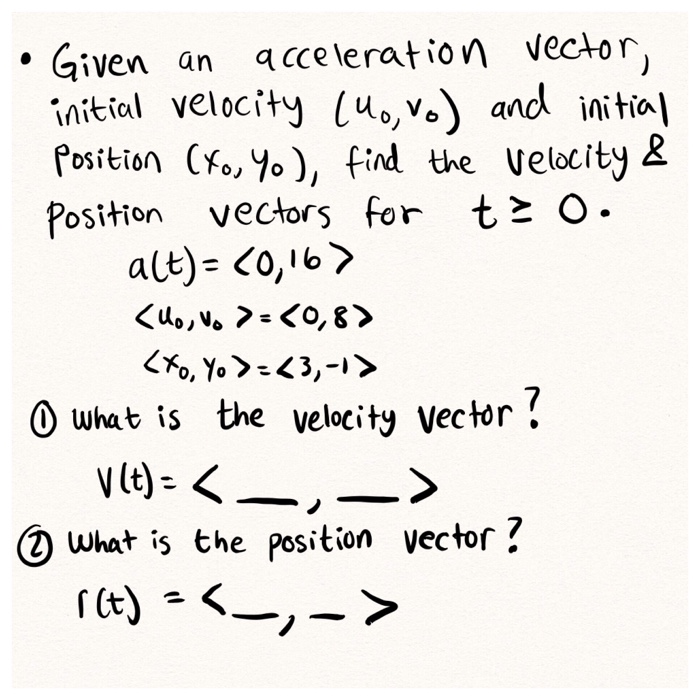 • Given an acceleration vector,
initial velocity (u₀, v₀) and initial
Position (x₀, y₀), find the velocity &
Position vectors for t ≥ 0.
a(t) = <0,16>
<u₀, v₀> = <0,8>
<x₀, y₀> = <3,-1>
① What is the velocity vector?
V(t) = <__, __>
② What is the position vector?
r(t) = <_, _>